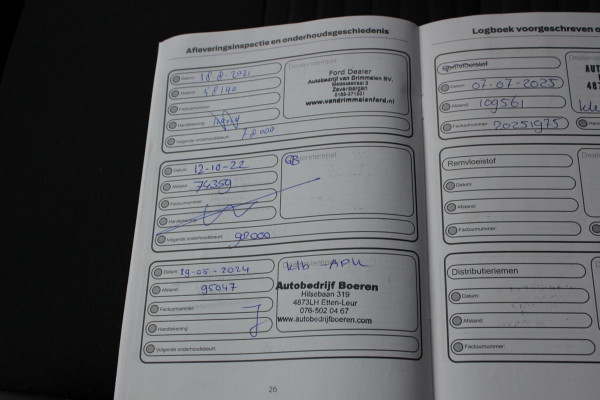 Afleveringsinspectie en onderhoudsgeschiedenis
Datum: 18-8-2021
Afstand: 58140
Factuurnummer:
Handtekening:
Volgende onderhoudsbeurt: 78000
Dealerstempel
Ford Dealer
Autobedrijf van Drimmelen BV.
Zevenbergen
www.vandrimmelenford.nl
Datum: 12-10-22
Afstand: 74359
Factuurnummer:
Handtekening:
Volgende onderhoudsbeurt: 98000
Datum: 14-05-2024
Afstand: 95047
Factuurnummer:
Handtekening:
Volgende onderhoudsbeurt:
klb - APK
Autobedrijf Boeren
Hilsebaan 319
4873LH Etten-Leur
076-502 04 67
www.autobedrijfboeren.com
26
Logboek voorgeschreven o
Datum: 07-07-2025
Afstand: 109561
Factuurnummer: 20251975
Remvloeistof
Datum:
Afstand:
Factuurnummer:
Distributieriemen
Datum:
Afstand:
Factuurnummer: